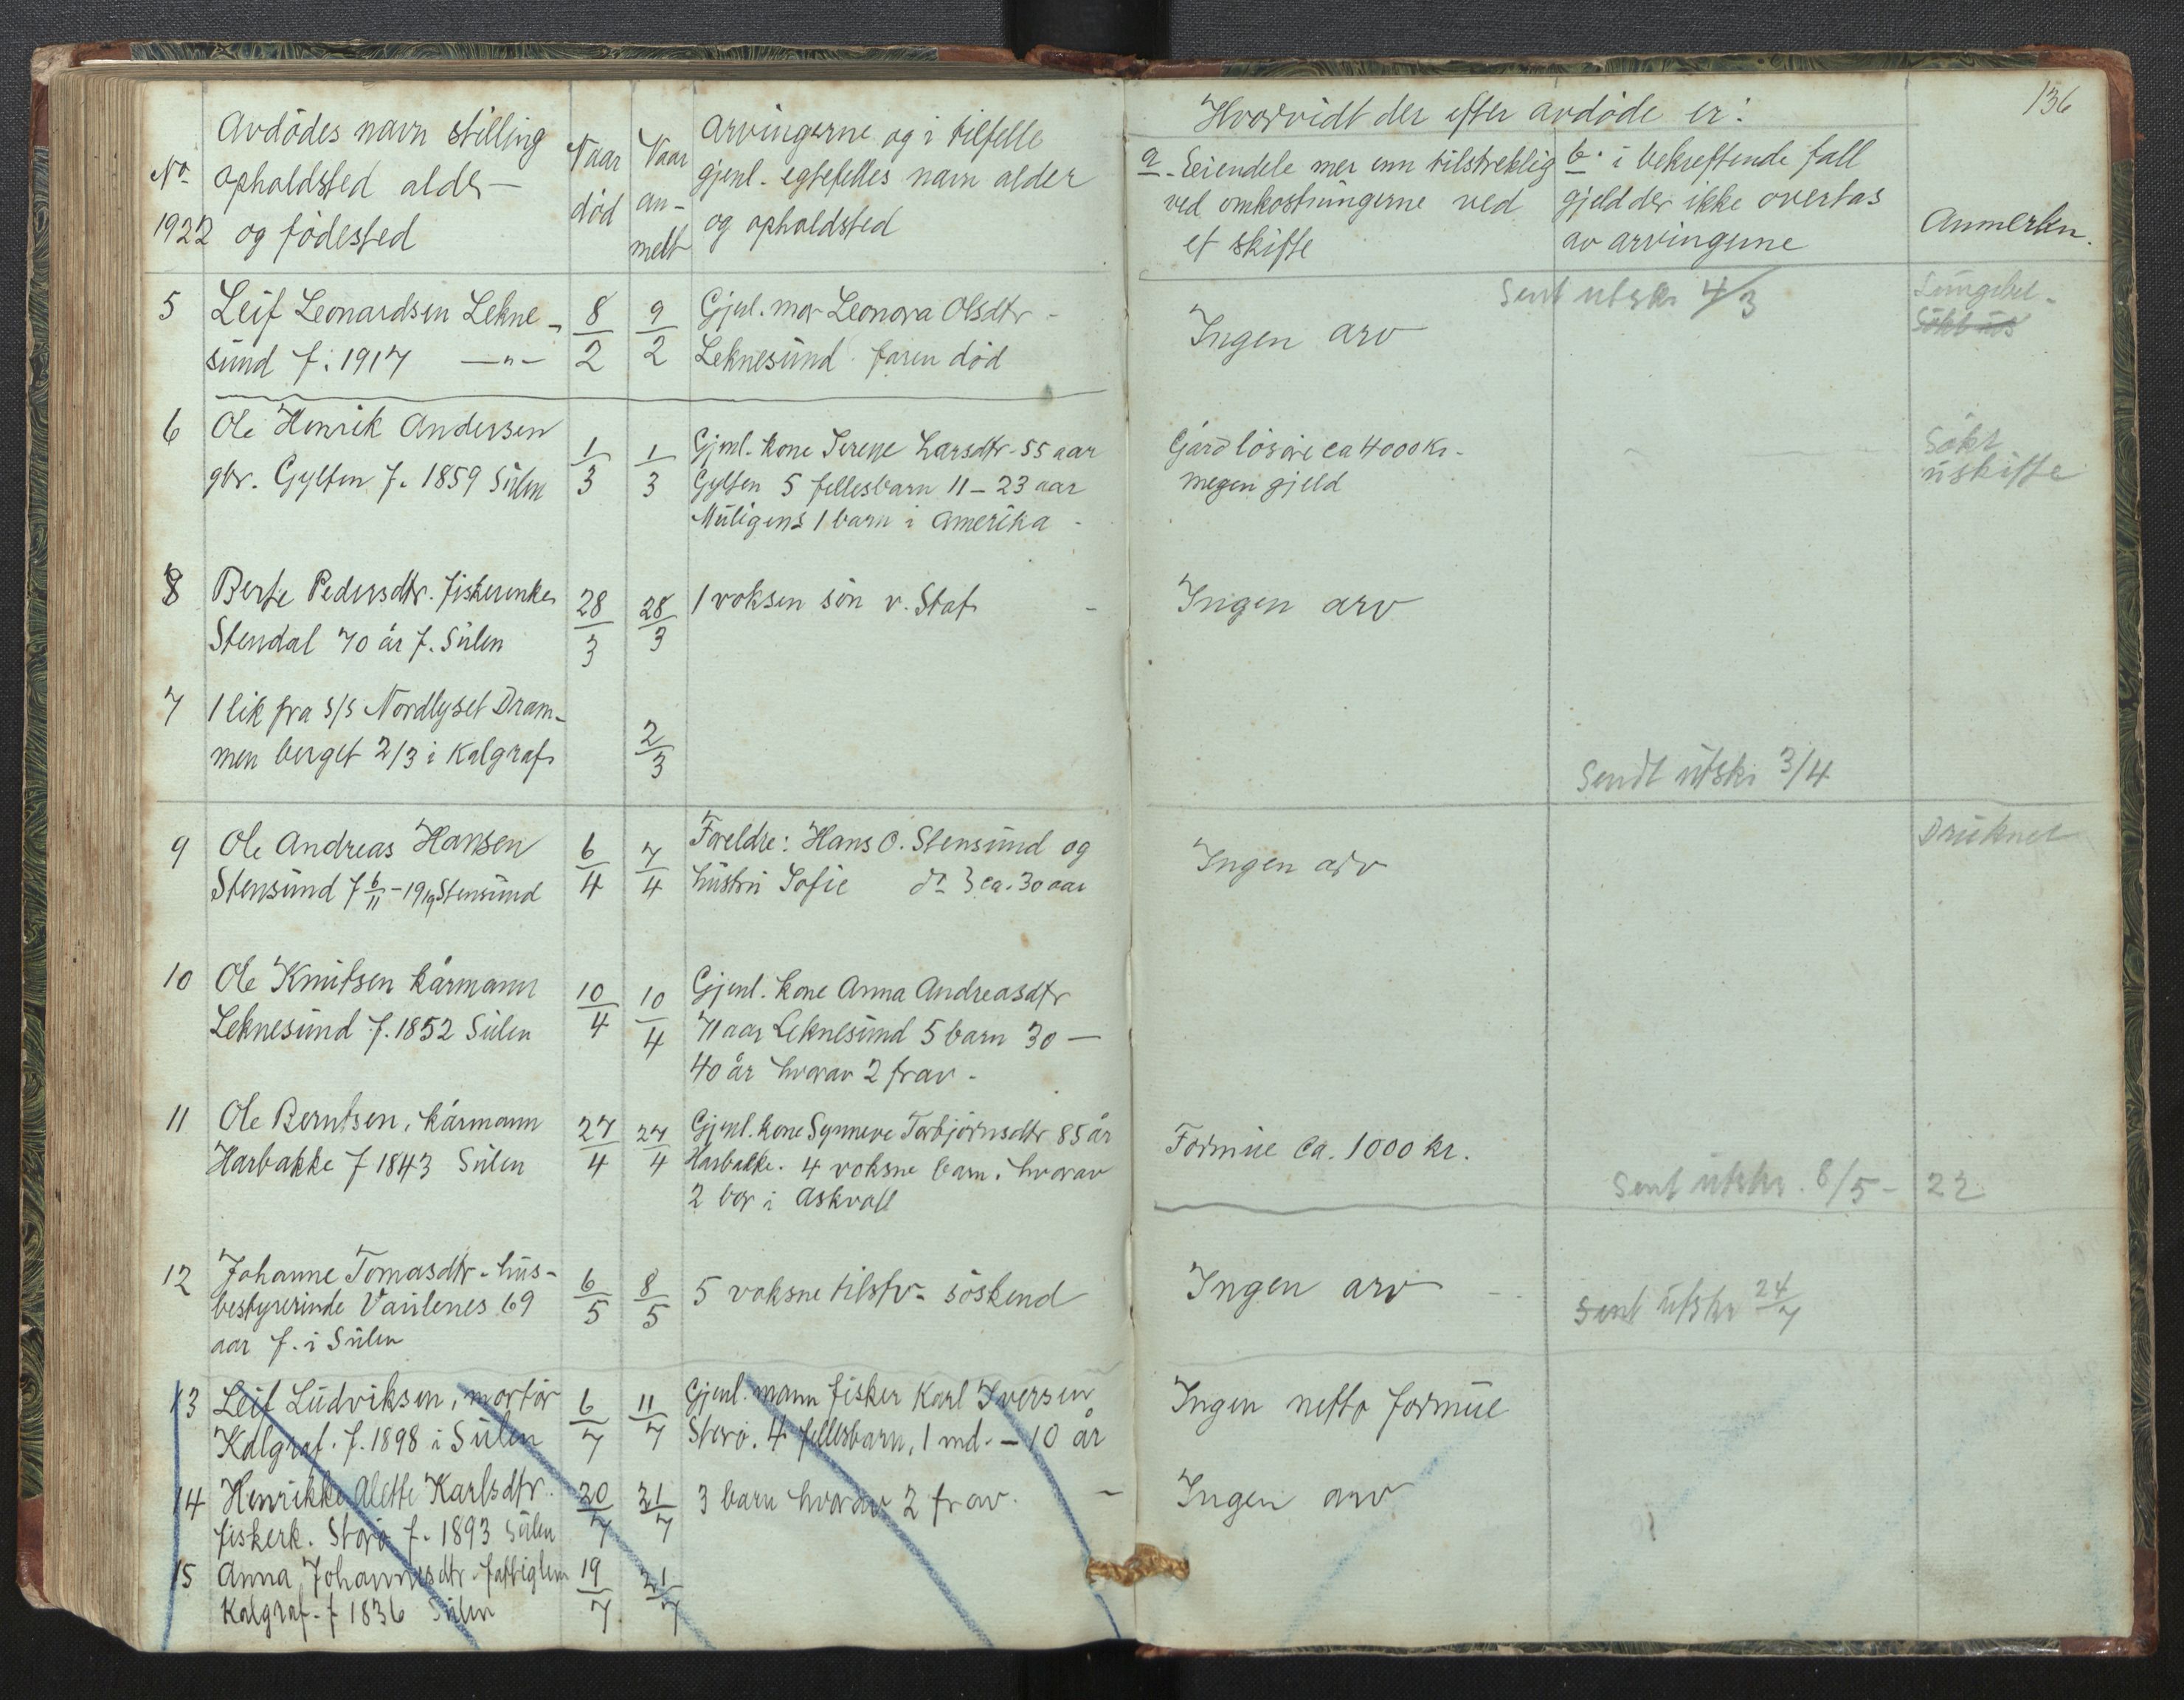 136
No
1922
Avdödes navn stilling
opholdsted alder
og födested
Naar
död
Naar
an-
melt
Arvingerne og i tilfelle
gjenl. egtefelles navn alder
og opholdsted
Hvorvidt der efter avdöde er:
a. Eiendele mer enn tilstreklig
ved omkostningerne ved
et skifte
b. i bekreftende fall
gjeld der ikke overtas
av arvingerne
Anmerkn.
5 Leif Leonardsen Lekne-
sund f. 1917 —"—
8/2
9/2
Gjenl. mor Leonora Olsdtr -
Leknesund faren död
Ingen arv
Sent utskr 4/3
6 Ole Henrik Andersen
gbr. Gylten f. 1859 Sulen
1/3
1/3
Gjenl. kone Serene Larsdtr. 55 aar
Gylten 5 fellesbarn 11 - 23 aar
Muligens 1 barn i Amerika -
Gård lösöre ca 4000 kr -
megen gjeld
Sökt
uskifte
8 Berte Pedersdtr. fiskerenke
Stendal 70 år f. Sulen
28/3
28/3
1 voksen sön v. Stat
-
Ingen arv
7 1 lik fra s/s Nordlyset Dram-
men berget 2/3 i Kalgraf
2/3
Sendt utskr 3/4
9 Ole Andreas Hansen
Stensund f 6/11 - 1919 Stensund
6/4
7/4
Foreldre: Hans O. Stensund og
hustru Sofie do } ca. 30 aar
Ingen arv
Druknet
10 Ole Knutsen kårmann
Leknesund f. 1852 Sulen
10/4
10/4
Gjenl. kone Anna Andreasdtr
71 aar Leknesund 5 barn 30 —
40 år hvorav 2 frav -
11 Ole Berntsen, kårmann
Harbakke f 1843 Sulen
27/4
27/4
Gjenl. kone Synneve Torbjörnsdtr 85 år
Harbakke. 4 voksne barn, hvorav
2 bor i Askvoll
Formue ca. 1000 kr.
Sent utskr. 8/5 - 22
12 Johanne Tomasdtr. hus-
bestyrerinde Vardenes 69
aar f. i Sulen
6/5
8/5
5 voksne tilstv- söskend
Ingen arv -
Sent utskr 24/7
13 Leif Ludviksen, matros
Kalgraf. f. 1898 i Sulen
6/7
11/7
Gjenl. mann fisker Karl Iversen
Sterö. 4 fellesbarn, 1 md. - 10 år
Ingen netto formue
14 Henrikke Alette Karlsdtr.
fiskerk. Sterö f. 1893 Sulen
20/7
21/7
3 barn hvorav 2 frav. -
Ingen arv
15 Anna Johannesdtr. fattiglem
Kalgraf - f 1836 Sulen
19/7
21/7